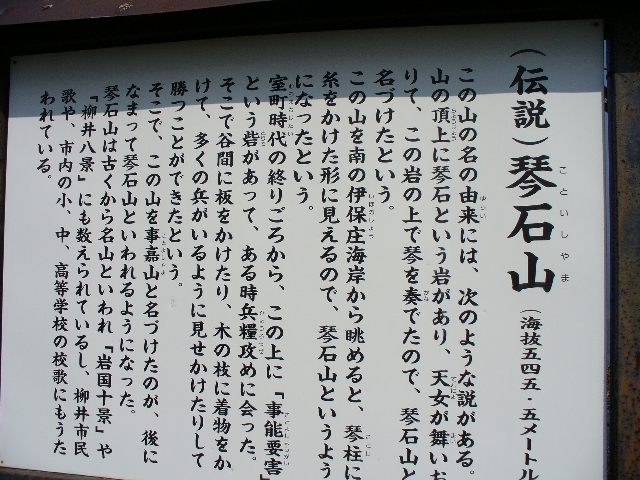 （伝説）琴石山（海抜五四五・五メートル
ことい しやま
この山の名の由来には、次のような説がある。
山の頂上に琴石という岩があり、天女が舞いお
りて、この岩の上で琴を奏でたので、琴石山と
名づけたという。
この山を南の伊保庄海岸から眺めると、琴柱に
糸をかけた形に見えるので、琴石山というよう
になったという。
室町時代の終りごろから、この上に「事能要害」
という砦があって、ある時兵糧攻めに会った。
そこで谷間に板をかけたり、木の枝に着物をか
けて、多くの兵がいるように見せかけたりして
勝つことができたという。
そこで、この山を事嘉山と名づけたのが、後に
なまって琴石山といわれるようになった。
琴石山は古くから名山といわれ『岩国十景』や
『柳井八景』にも数えられているし、柳井市民
歌や、市内の小、中、高等学校の校歌にもうた
われている。